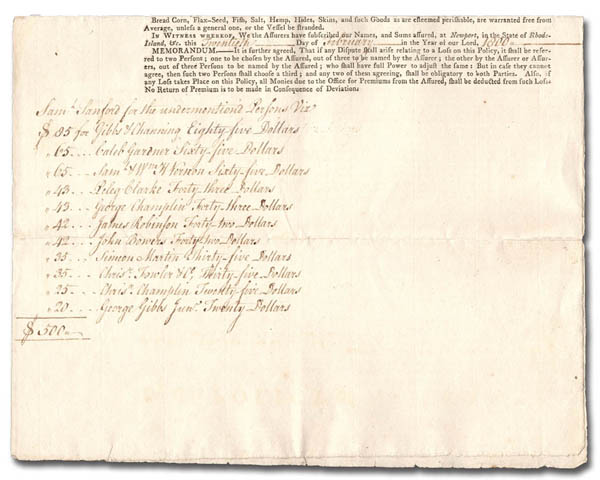 Bread Corn, Flax-Seed, Fish, Salt, Hemp, Hides, Skins, and such Goods as are esteemed perishable, are warranted free from
Average, unless a general one, or the Vessel be stranded.
IN WITNESS WHEREOF, We the Assurers have subscribed our Names, and Sums assured, at Newport, in the State of Rhode-
Island, &c. this Twentieth Day of February in the Year of our Lord, 1800
MEMORANDUM.—It is further agreed, That if any Dispute shall arise relating to a Loss on this Policy, it shall be refer-
red to two Persons; one to be chosen by the Assured, out of three to be named by the Assurer; the other by the Assurer or Assur-
ers, out of three Persons to be named by the Assured; who shall have full Power to adjust the same: But in case they cannot
agree, then such two Persons shall choose a third; and any two of them agreeing, shall be obligatory to both Parties. Also, if
any Loss takes Place on this Policy, all Monies due to the Office for Premiums from the Assured, shall be deducted from such Loss.
No Return of Premium is to be made in Consequence of Deviation.
Saml. Sanford for the undermention'd Persons Viz
$85 for Gibbs & Channing Eighty five Dollars
" 65 .... Caleb Gardner Sixty-five Dollars
" 65 .... Saml. & Wm. H Vernon Sixty-five Dollars
" 43 .... Peleg Clarke Forty-three Dollars
" 43 .... George Champlin Forty-three Dollars
" 42 .... James Robinson Forty-two Dollars
" 42 .... John Bowers Forty-two Dollars
" 35 .... Simeon Martin Thirty-five Dollars
" 35 .... Chrisr. Fowler & Co. Thirty-five Dollars
" 25 .... Chrisr. Champlin Twenty-five Dollars
" 20 .... George Gibbs Junr. Twenty Dollars
$500